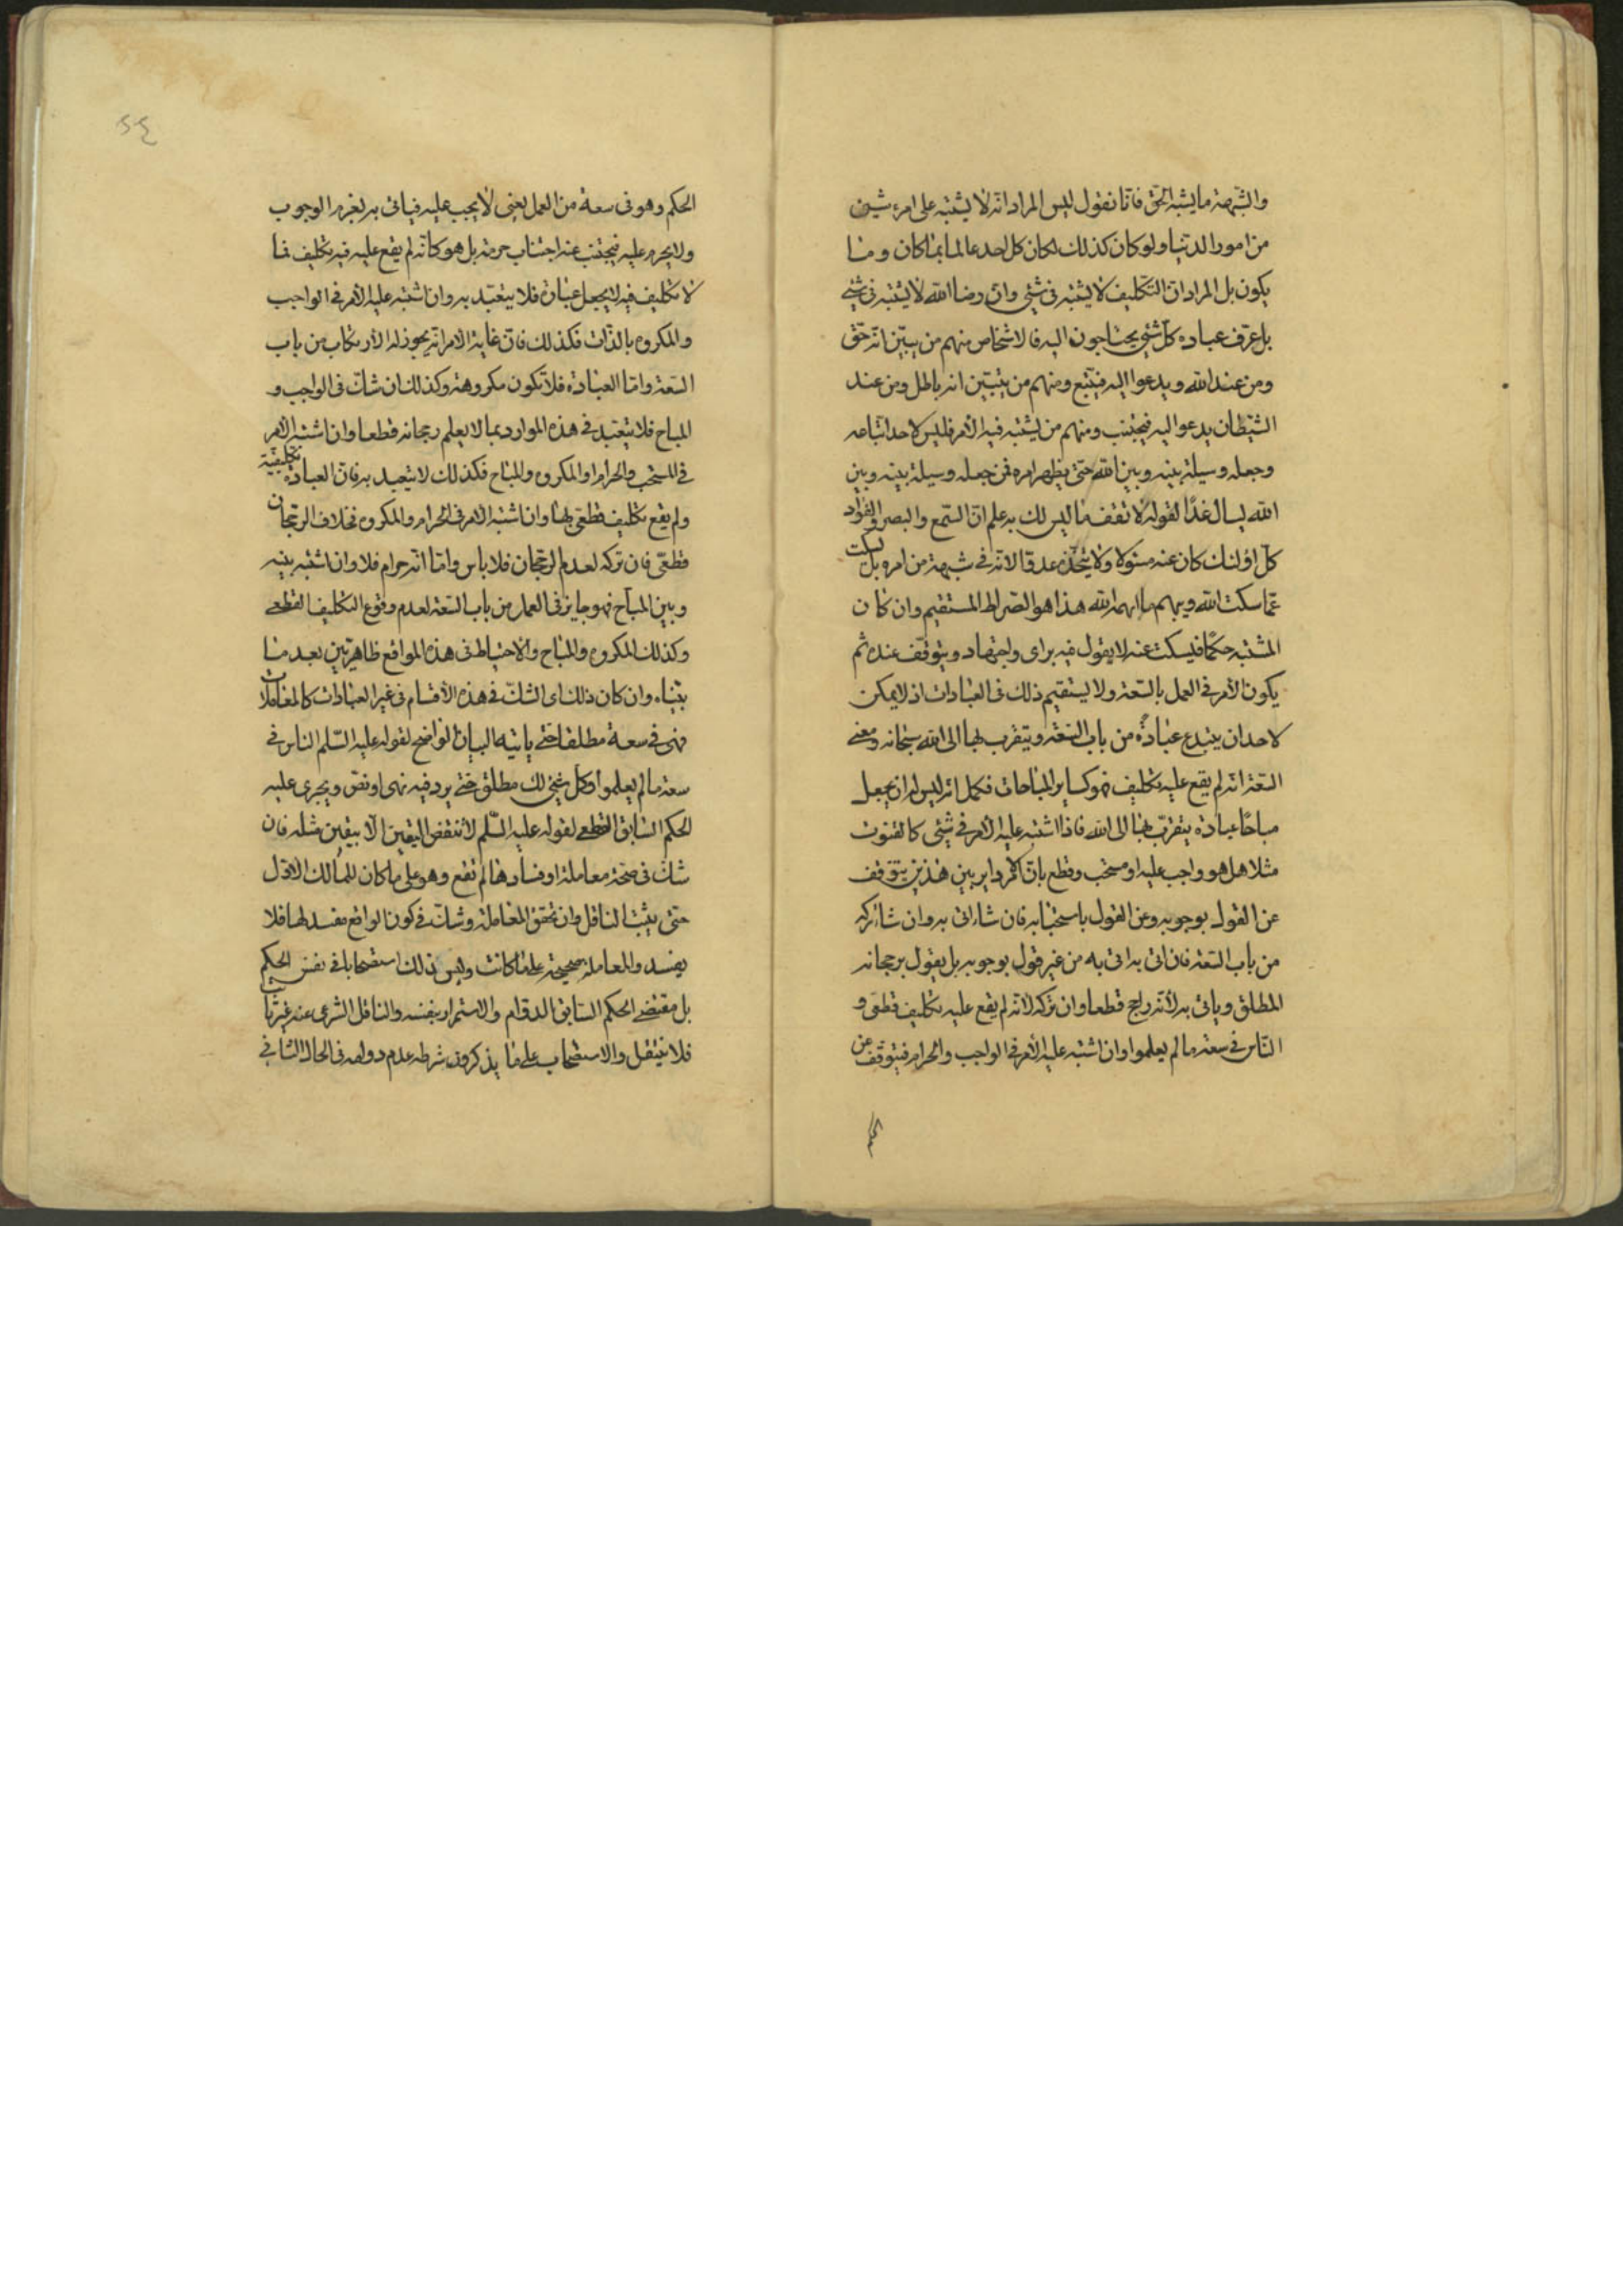 والشبهة ما يشبه الحق فانا نقول ليس المراد انه لا يشتبه على امرء شیء
من امور الدنيا ولو كان كذلك لكان كل احد عالما بما كان وما
يكون بل المراد ان التكليف لا يشتبه فى شئ وان رضا الله لا يشتبه فى شئ
بل عرّف عباده كل شئ يحتاجون اليه فالاشخاص منهم من يبيّن انه حق
ومن عند الله ويدعوا اليه فيتّبع ومنهم من يتبيّن انه باطل ومن عند
الشيطان يدعو اليه فيجتنب ومنهم من يشتبه فيه الأمر فليس لاحد اتباعه
وجعله وسيلة بينه وبين الله حتى يظهر امره فمن جعله وسيلة بينه وبين
الله ليسال غدًا لقوله لا تقف ما ليس لك به علم ان السمع والبصر والفؤاد
كل اولئك كان عنه مسئولا ولا يتخذه عدوّا لانه فى شبهة من امره بل يسكت
عما سكت الله ويبهم ما ابهمه الله هذا هو الصراط المستقيم وان كان
المشتبه حكمًا فليسكت عنه لا يقول فيه براى واجتهاد ويتوقّف عنده ثم
يكون الأمر فى العمل بالسعة ولا يستقيم ذلك فى العبادات اذ لا يمكن
لاحد ان يبتدع عبادةً من باب السعة ويتقرب بها الى الله سبحانه ومعنى
السعة انه لم يقع عليه تكليف فهو كساير المباحات فكما انه ليس له ان يجعل
مباحًا عبادة يتقرّب بها الى الله فاذا اشتبه عليه الأمر فى شئ كالقنوت
مثلا هل هو واجب عليه او مستحب وقطع بان الامر داير بين هذين يتوقف
عن القول بوجوبه وعن القول باستحبابه فان شاء اتى به وان شاء تركه
من باب السعة فان اتى به اتى به من غير قول بوجوبه بل يقول برجحانه
المطلق وياتى به لأنه راجح قطعا وان تركه لانه لم يقع عليه تكليف قطعى و
النّاس فى سعة ما لم يعلموا وان اشتبه عليه الأمر فى الواجب والحرام فيتوقف عن
الحكم
٢٤
الحكم وهو فى سعة من العمل يعنى لا يجب عليه فياتى به بعزم الوجوب
ولا يحرم عليه فيجتنب عنه اجتناب حرمة بل هو كانه لم يقع عليه فيه تكليف فما
لا تكليف فيه لا يجعل عبادة فلا يتعبّد به وان اشتبه عليه الأمر فى الواجب
والمكروه بالذّات فكذلك فان غاية الامر انه يجوز له الأرتكاب من باب
السعة واما العبادة فلا تكون مكروهة وكذلك ان شك فى الواجب و
المباح فلا يتعبد فى هذه الموارد بما لا يعلم رجحانه قطعا وان اشتبه الأمر
فى المستحب والحرام او المكروه والمباح فكذلك لا يتعبد به فان العبادة تكليفيّة
ولم يقع تكليف قطعى بها وان اشتبه الأمر فى الحرام والمكروه فخلاف الرجحان
قطعى فان تركه لعدم الرجحان فلا باس واما انه حرام فلا وان اشتبه بينه
وبين المباح فهو جايز فى العمل من باب السعة لعدم وقوع التكليف القطعى
وكذلك المكروه والمباح والاحتياط فى هذه المواقع ظاهر بيّن بعد ما
بيّناه وان كان ذلك اى الشك فى هذه الأقسام فى غير العبادات كالمعاملات
فهى فى سعة مطلقا حتى ياتيه البيان الواضح لقوله عليه السّلم الناس فى
سعة ما لم يعلموا وكل شئ لك مطلق حتى يرد فيه نهى او نص ويجرى عليه
الحكم السابق القطعى لقوله عليه السّلم لا تنقض اليقين الّا بيقين مثله فان
شك فى صحة معاملة او فسادها لم تقع وهو على ما كان للمالك الأوّل
حتى يثبت الناقل وان تحقق المعاملة وشك فى كون الواقع مفسد لها فلا
يفسد والمعاملة صحيحة على ما كانت وليس ذلك استصحابا فى نفس الحكم
بل مقتضى الحكم السّابق الدوام والاستمرار بنفسه والناقل الشرعى عنه غير ثابت
فلا ينتقل والاستصحاب على ما يذكرون شرطه عدم دوامه فى الحال الثانى